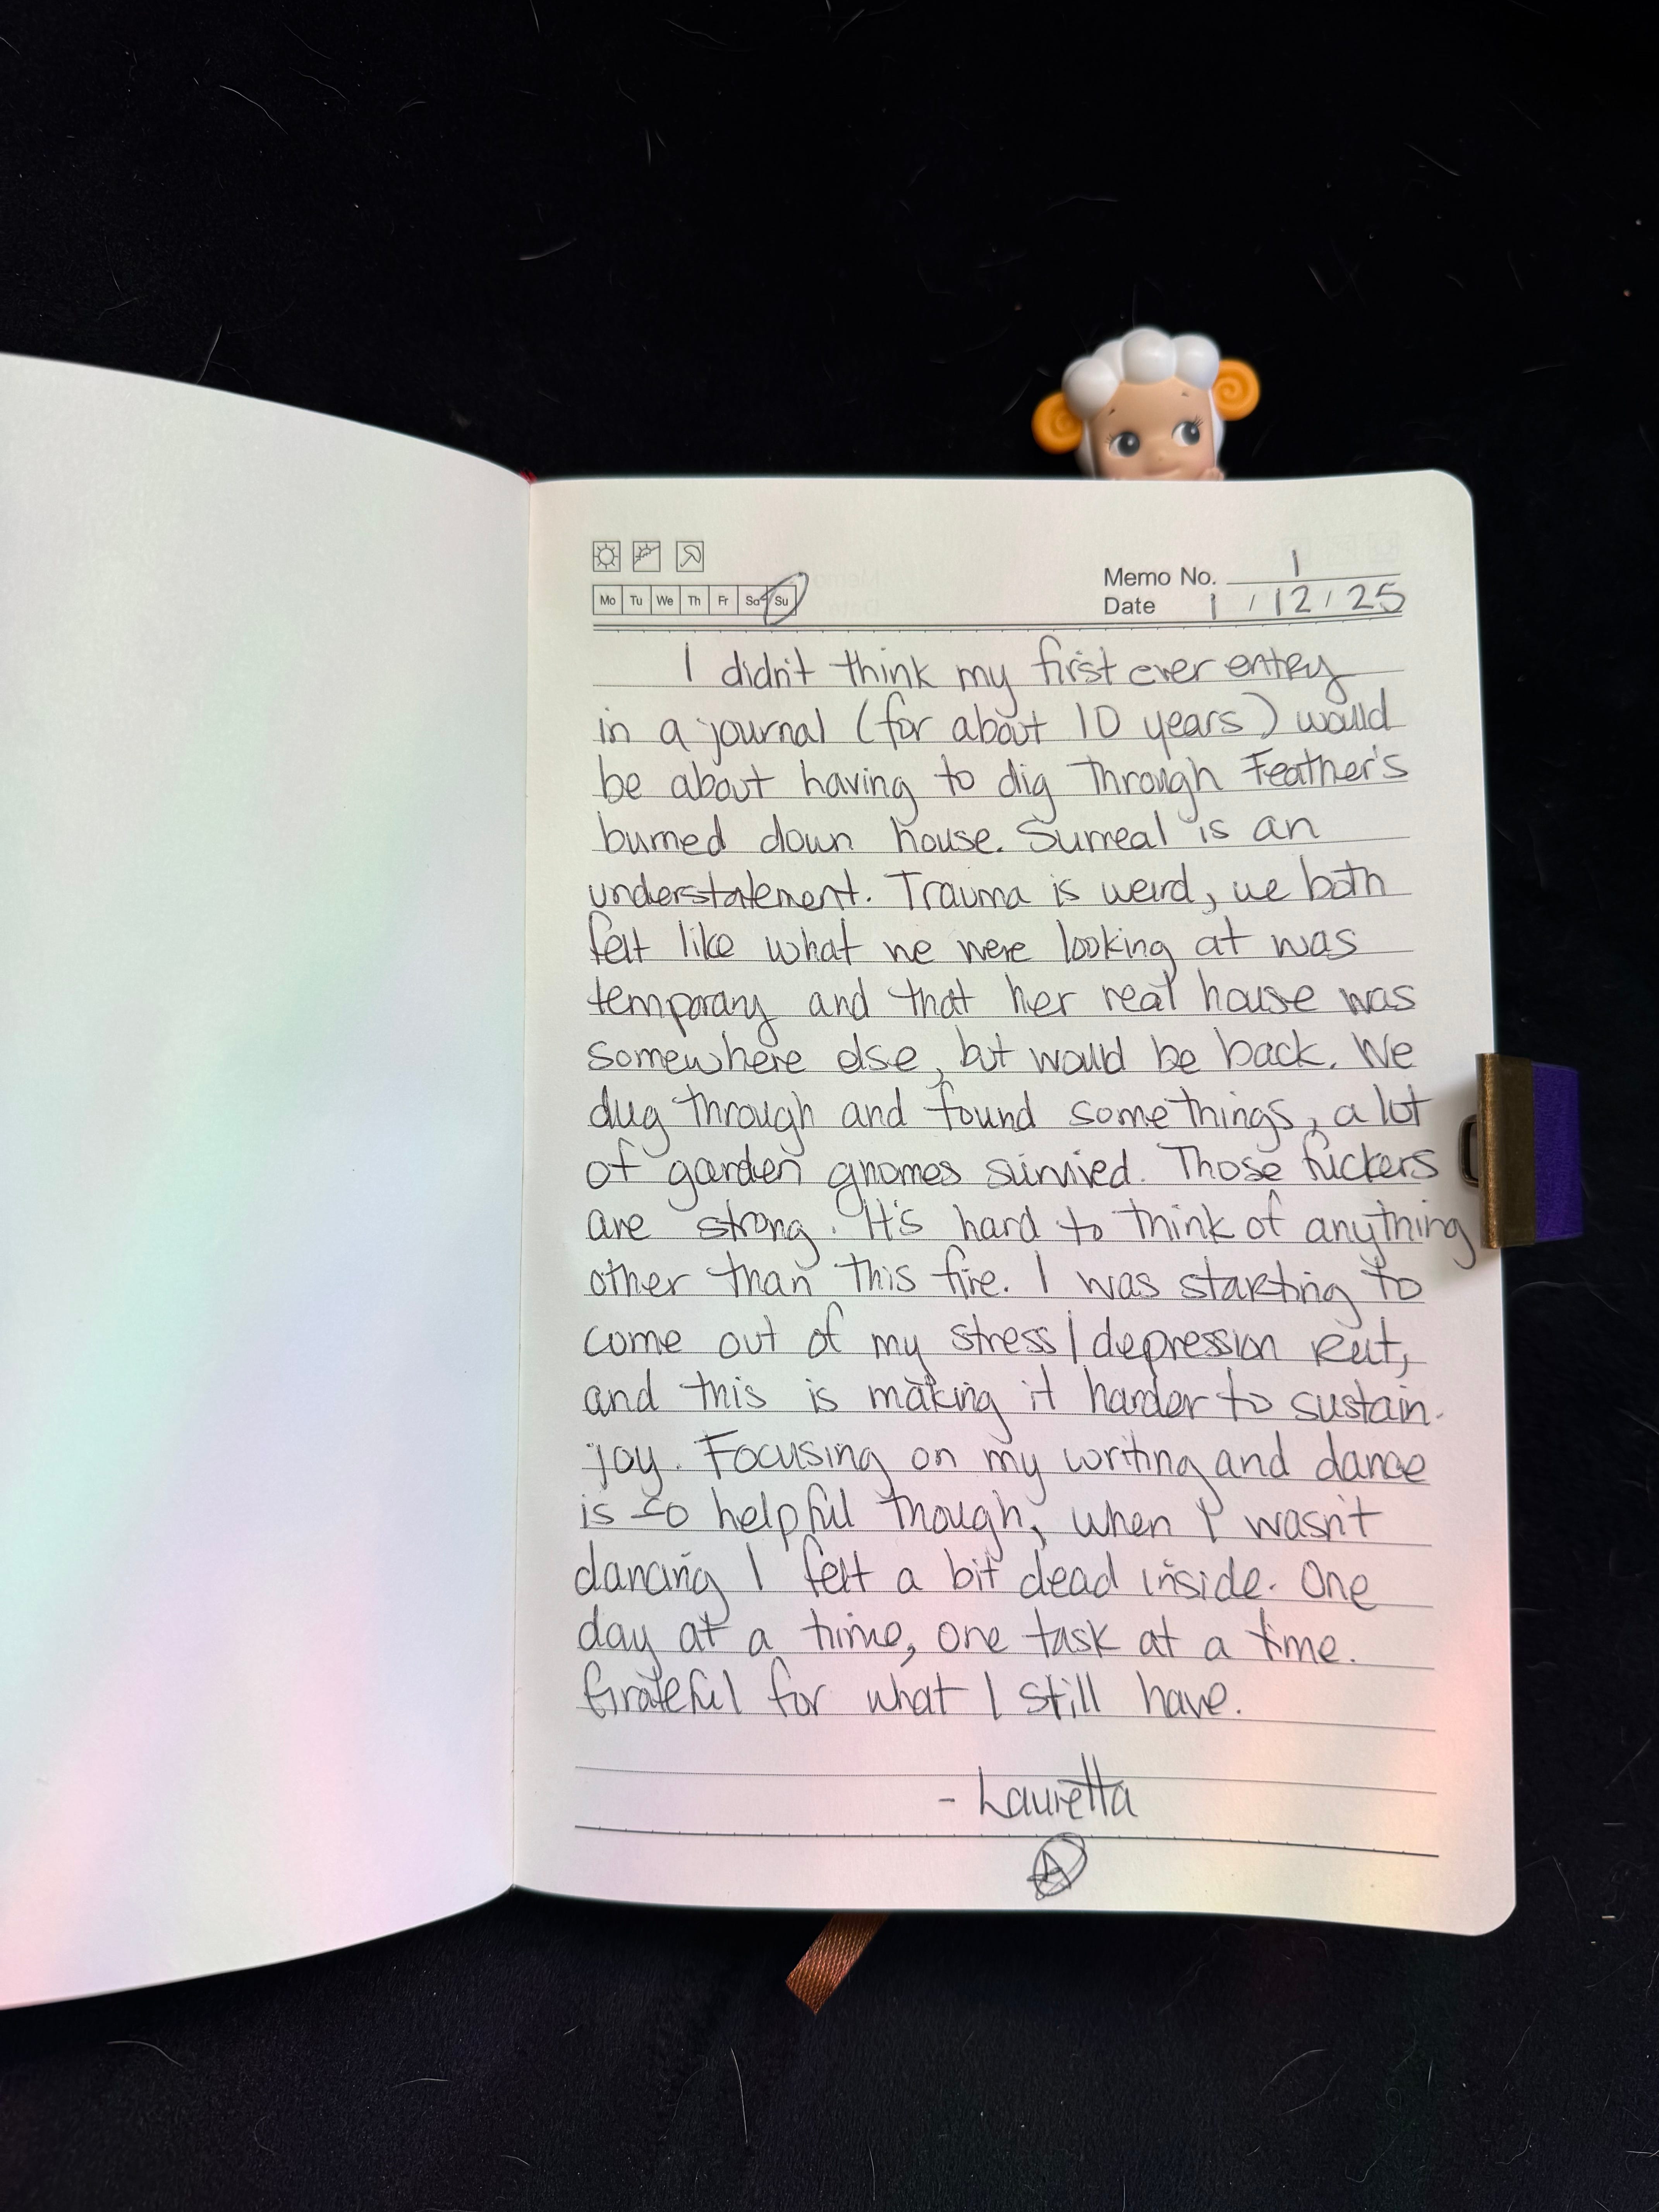 Mo Tu We Th Fr Sa Su
Memo No. 1
Date 1 / 12 / 25
I didn't think my first ever entry
in a journal (for about 10 years) would
be about having to dig through Feather's
burned down house. Surreal is an
understatement. Trauma is weird, we both
felt like what we were looking at was
temporary and that her real house was
somewhere else, but would be back. We
dug through and found some things, a lot
of garden gnomes survived. Those fuckers
are strong. It's hard to think of anything
other than this fire. I was starting to
come out of my stress/depression rut,
and this is making it harder to sustain
joy. Focusing on my writing and dance
is so helpful though, when I wasn't
dancing I felt a bit dead inside. One
day at a time, one task at a time.
Grateful for what I still have.
- Lauretta
A